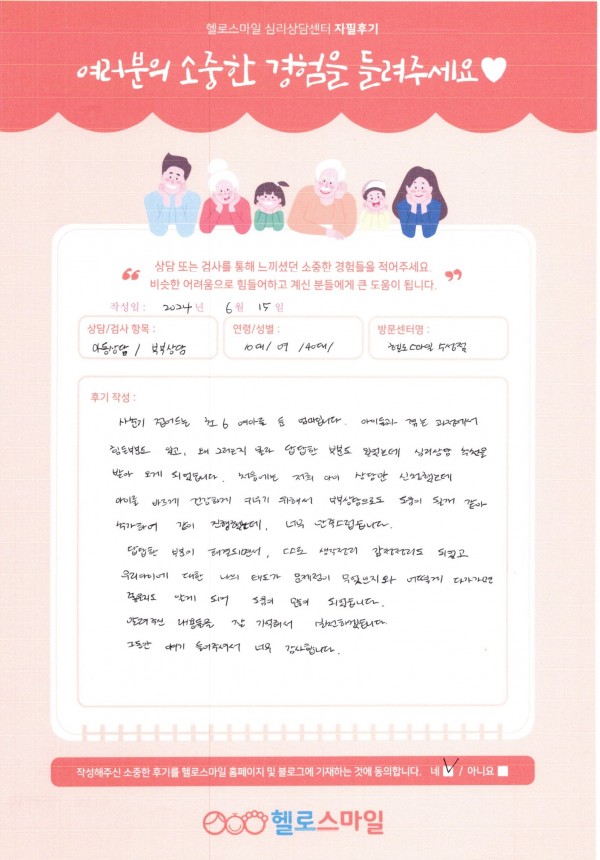 헬로스마일 심리상담센터 자필후기
여러분의 소중한 경험을 들려주세요
상담 또는 검사를 통해 느끼셨던 소중한 경험들을 적어주세요.
비슷한 어려움으로 힘들어하고 계신 분들에게 큰 도움이 됩니다.
작성일 : 2024년 6월 15일
상담/검사 항목 : 연령/성별 : 방문센터명 :
아동상담 / 부부상담 10대/ 여 /40대/ 헬로스마일 수성점
후기 작성 :
사춘기 접어드는 초6 여아를 둔 엄마입니다. 아이들과 겪는 과정에서
힘든부분도 있고, 왜 그러는지 몰라 답답한 부분도 많았는데 심리상담 추천을
받아 오게 되었습니다. 처음에는 저희 아이 상담만 신청했는데
아이를 바르게 건강하게 키우기 위해서 부부상담으로도 도움이 될거 같아
추가하여 같이 진행했는데, 너무 만족스럽습니다.
답답한 부분이 해결되면서, 스스로 생각정리 감정정리도 되었고
우리아이에 대한 나의 태도가 문제점이 무엇인지와 어떻게 다가가면
좋을지도 알게 되어 도움이 많이 되었습니다.
알려주신 내용들을 잘 기억해서 실천하겠습니다
그동안 얘기 들어주셔서 너무 감사합니다.
작성해주신 소중한 후기를 헬로스마일 홈페이지 및 블로그에 기재하는 것에 동의합니다. 네 / 아니요
헬로스마일